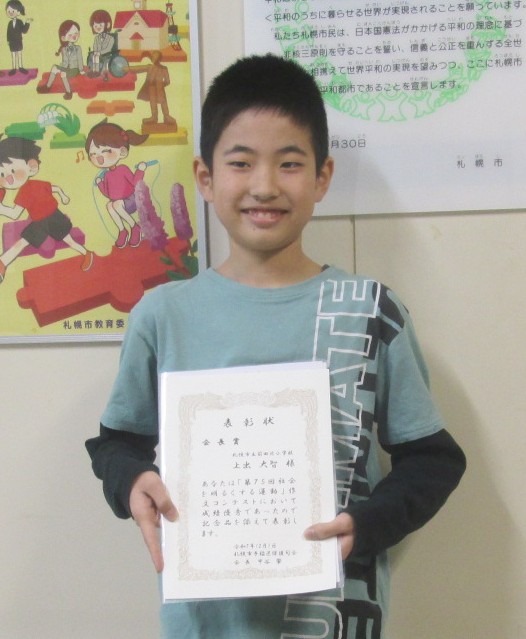 く平和のうちに暮らせる世界が実現されることを願っています。
私たち札幌市民は、日本国憲法がかかげる平和の理念に基づ
非核三原則を守ることを誓い、信義と公正を重んずる全世
相携えて世界平和の実現を望みつつ、ここに札幌市
平和都市であることを宣言します。
月30日
札幌市
札幌市教育委
表彰状
会長賞
上出 大智 様
あなたは「第75回社会
を明るくする運動」作
文コンテストにおいて
成績優秀であったので
記念品を添えて表彰し
ます。
令和7年12月1日
会長
ULTIMATE